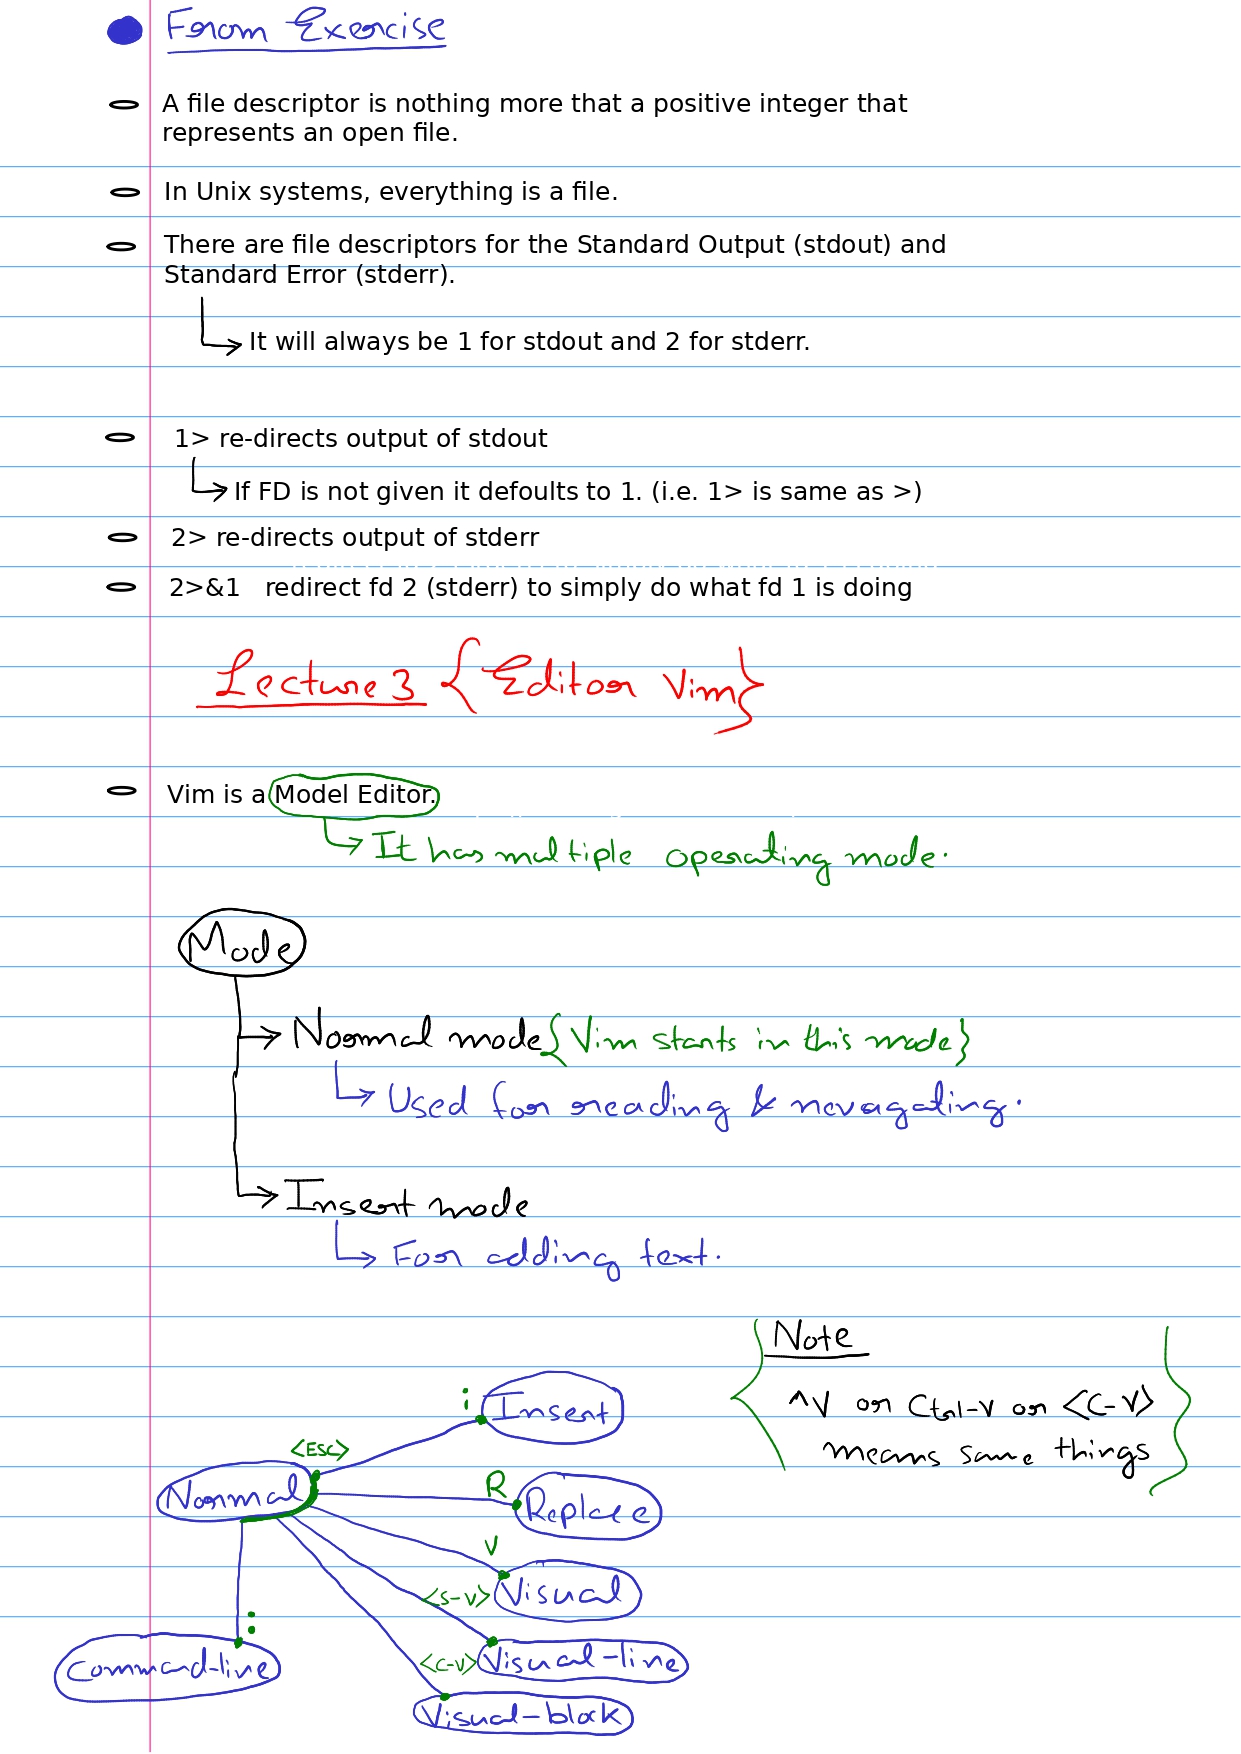 From Exercise
A file descriptor is nothing more that a positive integer that
represents an open file.
In Unix systems, everything is a file.
There are file descriptors for the Standard Output (stdout) and
Standard Error (stderr).
It will always be 1 for stdout and 2 for stderr.
1> re-directs output of stdout
If FD is not given it defoults to 1. (i.e. 1> is same as >)
2> re-directs output of stderr
2>&1 redirect fd 2 (stderr) to simply do what fd 1 is doing
Lecture 3 {Editor Vim}
Vim is a Model Editor.
It has multiple operating mode.
Mode
Normal mode {Vim starts in this mode}
Used for reading & nevagating.
Insert mode
For adding text.
Note
^V or Ctrl-V or <C-V>
means same things
i Insert
<ESC>
Normal
R Replace
V Visual
<S-V> Visual-line
: Command-line
<C-V> Visual-block